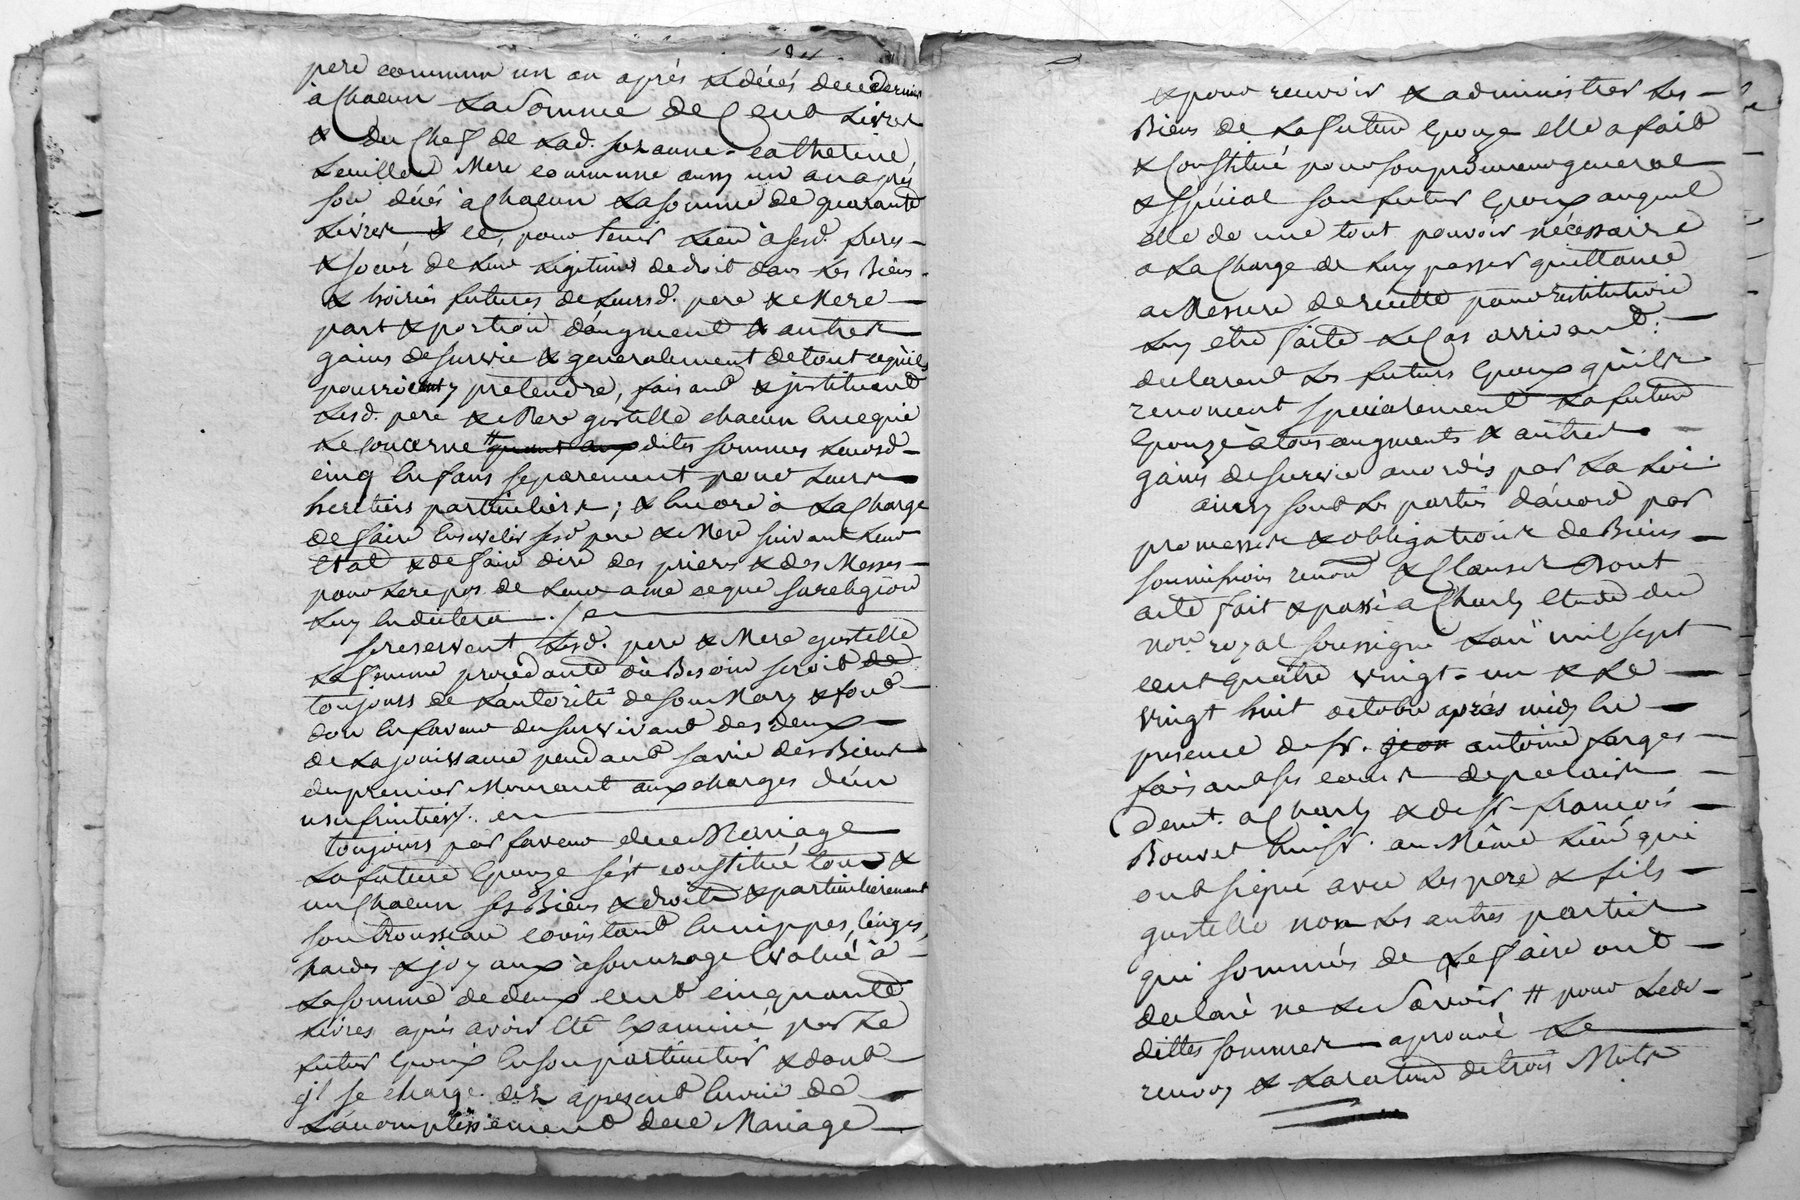 pere commun un an après & décès de ce dernier
à Chacun La Somme de Cent Livres
& du Chef de Lad. suzanne-catherine
Mere commune aussy un an après
son décés à Chacun La somme de quarante
Livres & ce, pour tenir Lieu à sesd. freres
& soeur de leur Legitimes de droit dans Les Biens
& hoiries futures de Leursd. pere & Mere
part & portion d'augment & autres
gains de survie & generalement de tout ce qu'ils
pourroient y pretendre, faisant & jnstituant
Lesd. pere & Mere gustelle chacun En ce qui
Le Concerne # quant aux dites sommes Leursd
cinq Enfans separement pour Leurs
heretiers particuliers; & Encore à La Charge
de faire Ensevelir sesd pere & Mere suivant Leur
Etat & de faire dire des prieres & des Messes
pour Le repos de Leur ame ce que sa religion
Luy Endictera ./. en
se reservent Lesd. pere & Mere gustelle
La femme procedante où Besoin seroit de
toujours de L'autorité de son Mary & font
don En faveur du survivant des deux
de La jouissance pendant sa vie des Biens
du premier Mourant aux charges d'un
usufruitier /. en
toujours par faveur de ce Mariage
La future Epouze s'est constitué tous &
un Chacun ses Biens & droits & particulierement
son trousseau consistant En nippes, Linges,
hardes & joyaux à son uzage Evalué à
La somme de deux cent cinquante
Livres après avoir Eté Examiné par Le
futur Epoux En son particulier & dont
jl se charge des apresent En vüe de
L'accomplissement de ce Mariage
& pour recevoir & administrer Les
Biens de La future Epouze elle a fait
& Constitué pour son procureur general
& special son futur Epoux auquel
elle donne tout pouvoir nécessaire
a La Charge de Luy passer quittance
a Mesure de recette pour restitution
Luy etre faite Le Cas arrivant:
declarent Les futurs Epoux qu'ils
renoncent specialement La future
Epouze à tous augments & autres
gains de survie accordés par La Loi.
ainsy sont Les parties d'acord par
promesses & obligations de Biens
soumissions renon & Clauses Dont
acte fait & passé a Charly Etude du
nore royal soussigné L'an mil sept
cent quatre vingt-un & Le
vingt huit octobre après midy En
presence de sr. jean antoine farges
faisant ses cours de
demt. a Charly & de sr françois
Bouvet huissr. au Même Lieu qui
ont signé avec Les pere & fils
gustelle non Les autres parties
qui sommés de Le faire ont
declaré ne Le sçavoir # pour Lesd
dittes sommes aprouvé Le
renvoy & La rature de trois Mots